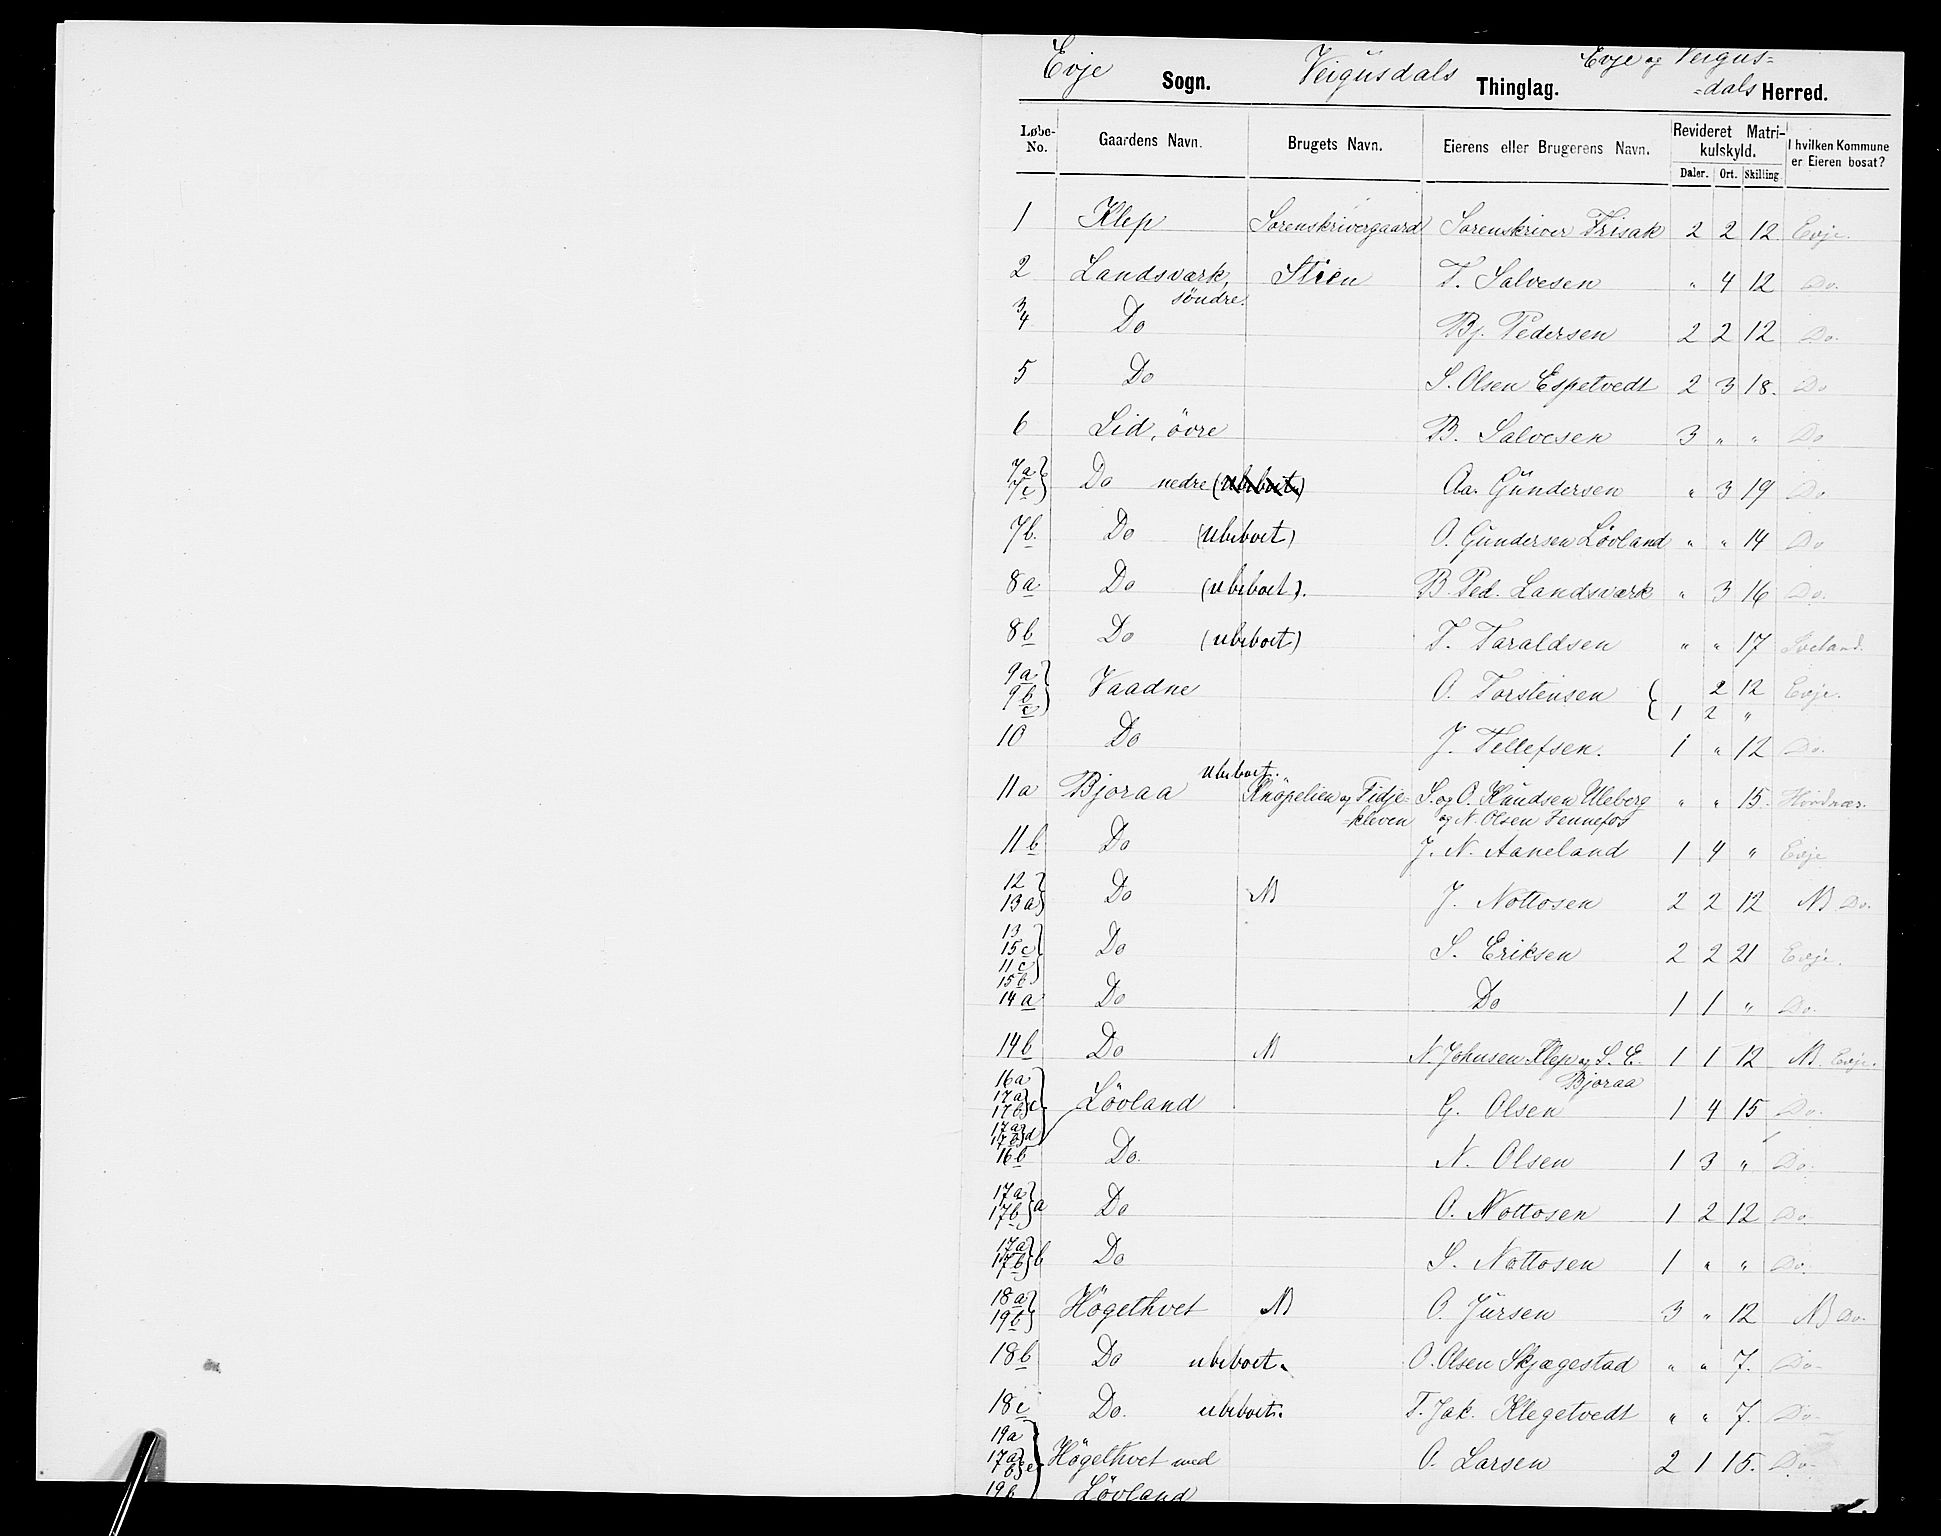 Evje Sogn. Veigusdals Thinglag. Evje og Veigus=
=dals Herred.
Løbe-No. Gaardens Navn. Brugets Navn. Eierens eller Brugerens Navn. Revideret Matrikulskyld. I hvilken Kommune er Eieren bosat?
Daler. Ort. Skilling
1 Klep Sorenskrivergaard Sorenskriver Frisak 2 2 12 Evje.
2 Landsværk, søndre. Stien T. Salvesen " 4 12 Do.
3 4 Do Bj. Pedersen 2 2 12 Do.
5 Do S. Olsen Espetvedt 2 3 18. Do
6 Lid, övre B. Salvesen 3 " " Do
7a 7c } Do nedre (ubeboet.) Aa. Gundersen " 3 19 Do
7b. Do (ubeboet) O. Gundersen Lövland " " 14 Do
8a Do (ubeboet). B. Ped. Landsværk " 3 16 Do.
8b Do (ubeboet) T. Taraldsen " " 17 Iveland.
9a 9b c } Vaadne O. Torstensen { 2 12 Evje.
{ 1 2 "
10 Do J. Tellefsen. 1 " 12 Do.
11a Bjoraa ubeboet. Knapelien og Fidje=
=kleven S. og O. Knudsen Uleberg
og N. Olsen Fennefos " " 15. Hornnæs.
11b Do J. N. Aaneland 1 4 " Evje
12 13a } Do NB J. Nottosen 2 2 12 NB Do.
13 15c 11c } Do S. Eriksen 2 2 21 Evje.
15b
14a Do Do 1 1 " Do.
14b Do NB N. Johnsen Klep og S. E.
Bjoraa 1 1 12 NB. Evje.
16a 17a 17b } c. Lövland G. Olsen 1 4 15 Do.
17a 17b } d
16b Do. N. Olsen 1 3 " Do.
17a 17b } a Do O. Nottosen 1 2 12 Do.
17a 17b } b Do S. Nottosen 1 " " Do.
18a 19b } Högethvet NB O. Jursen 3 " 12 NB Do.
18b Do ubeboet. O. Olsen Skjægestad " " 7. Do-
18c Do. ubeboet. T. Jak. Klegetvedt " " 7. Do-
19a
17a b } e Högethvet med O. Larsen 2 1 15. Do-
19b Lövland